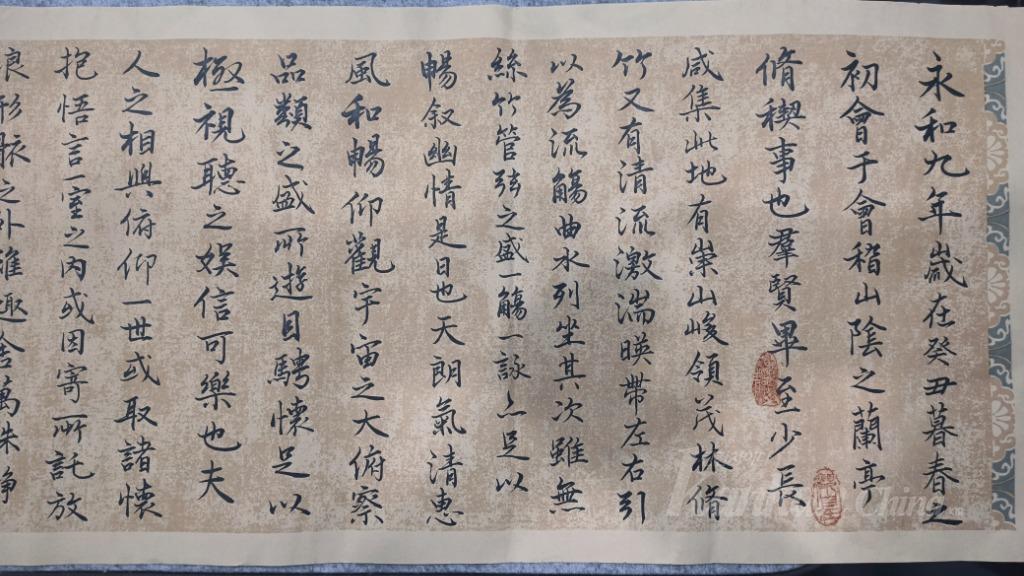 永和九年歲在癸丑暮春之
初會于會稽山陰之蘭亭
脩稧事也羣賢畢至少長
咸集此地有崇山峻領茂林脩
竹又有清流激湍暎帶左右引
以為流觴曲水列坐其次雖無
絲竹管弦之盛一觴一詠亦足以
暢叙幽情是日也天朗氣清惠
風和暢仰觀宇宙之大俯察
品類之盛所遊目騁懷足以
極視聽之娛信可樂也夫
人之相與俯仰一世或取諸懷
抱悟言一室之內或因寄所託放
浪形骸之外雖趣舍萬殊静
China